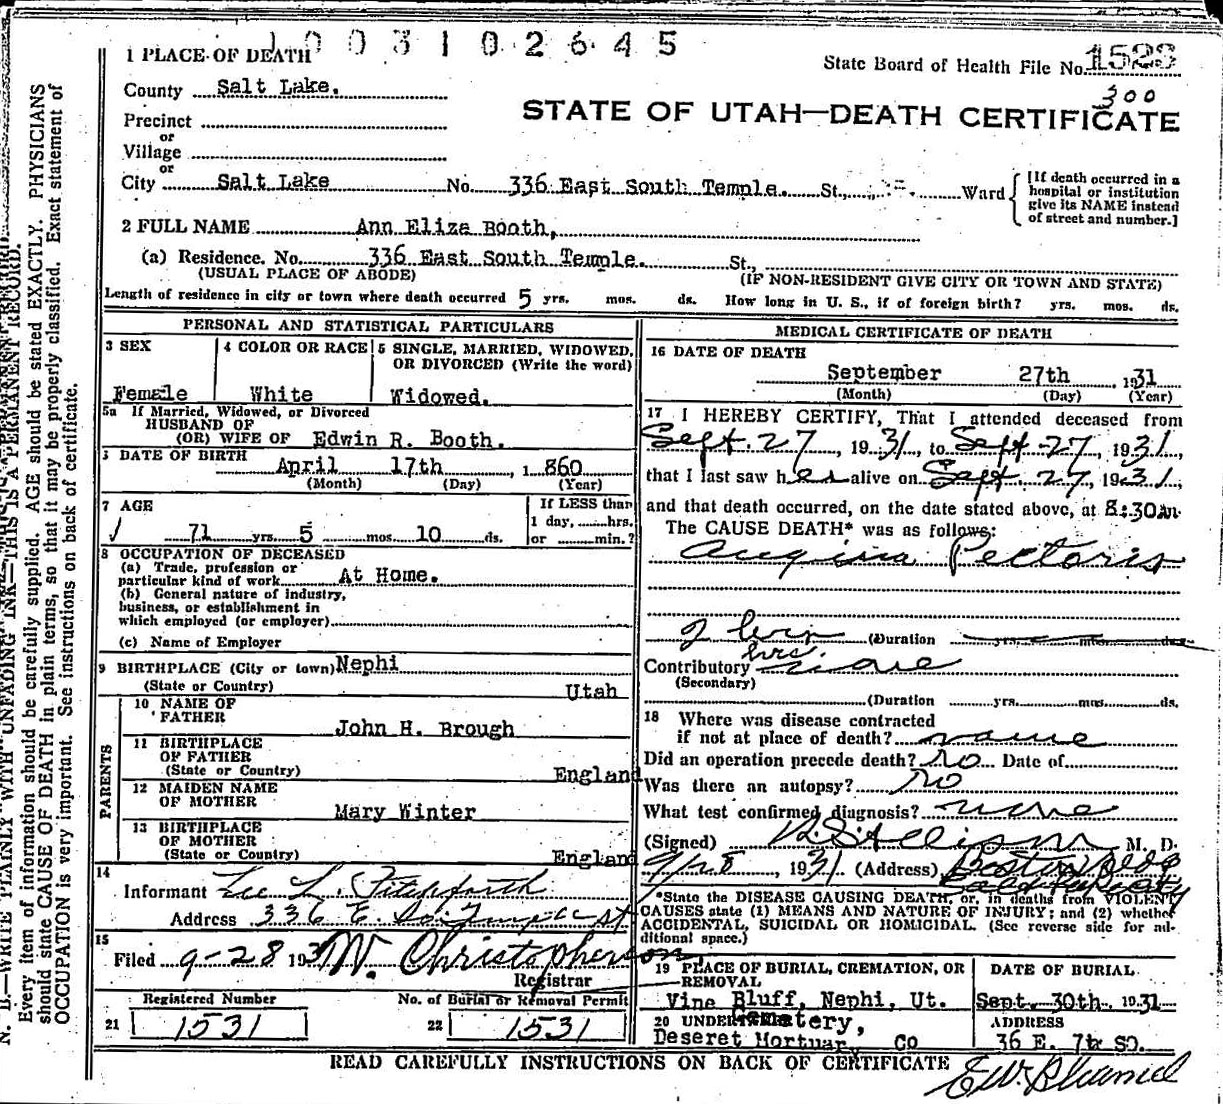 1003102645
1 PLACE OF DEATH
State Board of Health File No. 1523
300
County Salt Lake.
STATE OF UTAH—DEATH CERTIFICATE
Precinct
or
Village
or
City Salt Lake No. 336 East South Temple. St., Ward
[If death occurred in a hospital or institution give its NAME instead of street and number.]
2 FULL NAME Ann Eliza Booth,
(a) Residence. No. 336 East South Temple. St.,
(USUAL PLACE OF ABODE) (IF NON-RESIDENT GIVE CITY OR TOWN AND STATE)
Length of residence in city or town where death occurred 5 yrs. mos. ds. How long in U. S., if of foreign birth? yrs. mos. ds.
PERSONAL AND STATISTICAL PARTICULARS
3 SEX
Female
4 COLOR OR RACE
White
5 SINGLE, MARRIED, WIDOWED,
OR DIVORCED (Write the word)
Widowed.
5a If Married, Widowed, or Divorced
HUSBAND OF
(OR) WIFE OF Edwin R. Booth.
DATE OF BIRTH
April 17th, 1860
(Month) (Day) (Year)
7 AGE
71 yrs. 5 mos. 10 ds.
If LESS than
1 day, hrs.
or min.?
8 OCCUPATION OF DECEASED
(a) Trade, profession or
particular kind of work At Home.
(b) General nature of industry,
business, or establishment in
which employed (or employer)
(c) Name of Employer
9 BIRTHPLACE (City or town) Nephi
(State or Country) Utah
PARENTS
10 NAME OF
FATHER
John H. Brough
11 BIRTHPLACE
OF FATHER
(State or Country) England
12 MAIDEN NAME
OF MOTHER
Mary Winter
13 BIRTHPLACE
OF MOTHER
(State or Country) England
14
Informant Lee L.
Address 336 E. So. Temple St
15
Filed 9-28 1931 W. Christopherson
Registrar
Registered Number
21 1531
No. of Burial or Removal Permit
22 1531
MEDICAL CERTIFICATE OF DEATH
16 DATE OF DEATH
September 27th, 1931
(Month) (Day) (Year)
17 I HEREBY CERTIFY, That I attended deceased from
Sept. 27, 1931, to Sept. 27, 1931,
that I last saw her alive on Sept 27, 1931,
and that death occurred, on the date stated above, at 8:30 AM
The CAUSE DEATH* was as follows:
Angina Pectoris
(Duration yrs. mos. ds.
Contributory none
(Secondary)
(Duration yrs. mos. ds.
18 Where was disease contracted
if not at place of death?
Did an operation precede death? No Date of
Was there an autopsy? No
What test confirmed diagnosis? none
(Signed) M. D.
9/28, 1931 (Address) Boston Bldg
Salt Lake City
*State the DISEASE CAUSING DEATH, or, in deaths from VIOLENT
CAUSES state (1) MEANS AND NATURE OF INJURY; and (2) whether
ACCIDENTAL, SUICIDAL OR HOMICIDAL. (See reverse side for additional space.)
19 PLACE OF BURIAL, CREMATION, OR
REMOVAL
Vine Bluff, Nephi, Ut.
Cemetery,
DATE OF BURIAL
Sept. 30th, 1931
20 UNDER
Deseret Mortuar Co
ADDRESS
36 E. 7th SO.
READ CAREFULLY INSTRUCTIONS ON BACK OF CERTIFICATE
N. B.—WRITE PLAINLY WITH UNFADING INK—THIS IS A PERMANENT RECORD.
Every item of information should be carefully supplied. AGE should be stated EXACTLY. PHYSICIANS
should state CAUSE OF DEATH in plain terms, so that it may be properly classified. Exact statement of
OCCUPATION is very important. See instructions on back of certificate.